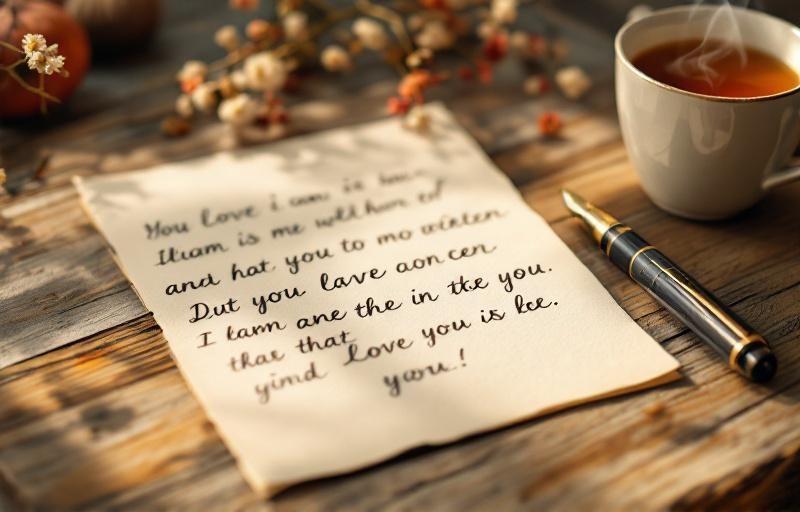 You love i am is
Ilıam is me
and hat you to mo
Dut you lave aon cen
I lamn ane the in the you.
thae that Love you is lee.
yimd
you!